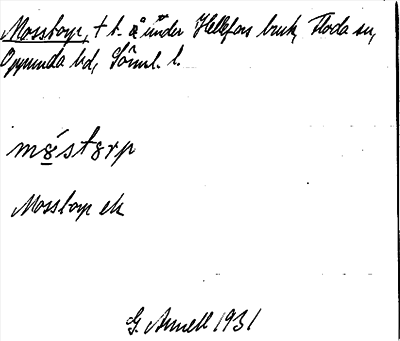 Mosstorp, t t. å under Hellefors bruk, Floda sn,
Oppunda hd, Söml. l.
Mosstorp ek
G. Arnell 1931